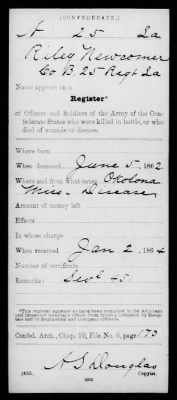 (CONFEDERATE.)
N 25 La
Riley Newcomer
Co B, 25 Regt La
Name appears on a
Register*
of Officers and Soldiers of the Army of the Con-
federate States who were killed in battle, or who
died of wounds or disease.
Where born
When deceased June 5, 1862.
Where and from what cause Okolona
Miss. Disease
Amount of money left
Effects
In whose charge
When received Jan 2, 1864
Number of certificate
Remarks:
*This register appears to have been compiled in the Adjutant
and Inspector General's Office from records furnished by Regi-
ments and Companies
Confed. Arch., Chap. 10, File No. 6, page 173
A S Douglas
Copyist.